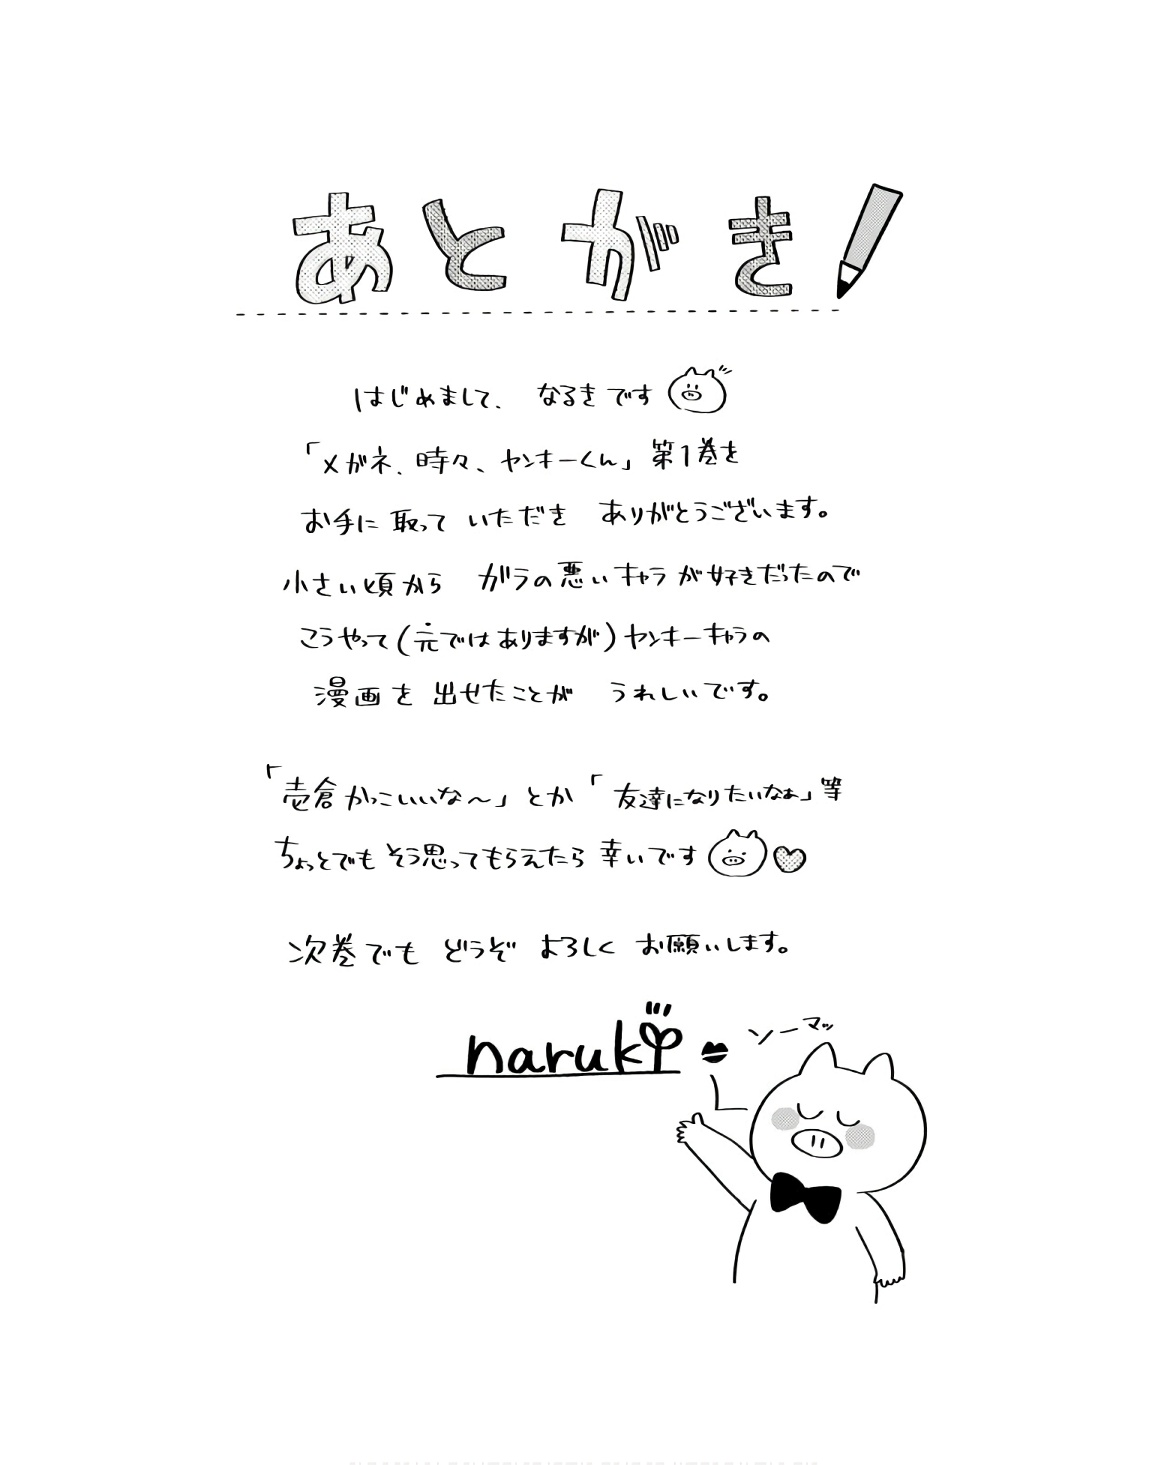 あとがき
はじめまして、なるきです
「メガネ、時々、ヤンキーくん」第1巻を
お手に取っていただき ありがとうございます。
小さい頃から ガラの悪いキャラが好きだったので
こうやって(元ではありますが)ヤンキーキャラの
漫画を出せたことが うれしいです。
「壱倉かっこいいな～」とか「友達になりたいなぁ」等
ちょっとでもそう思ってもらえたら幸いです
次巻でも どうぞ よろしく お願いします。
naruki
ソーマッ